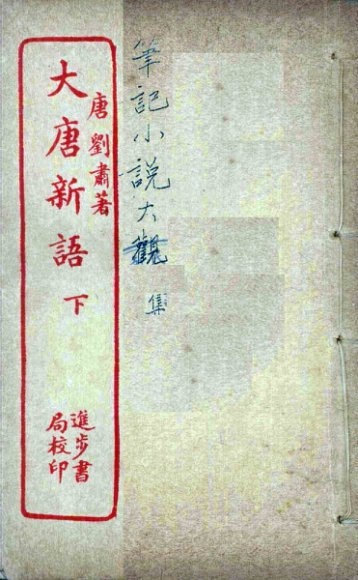 筆記小説大觀 集
唐 劉肅著
大唐新語 下
進步書
局校印